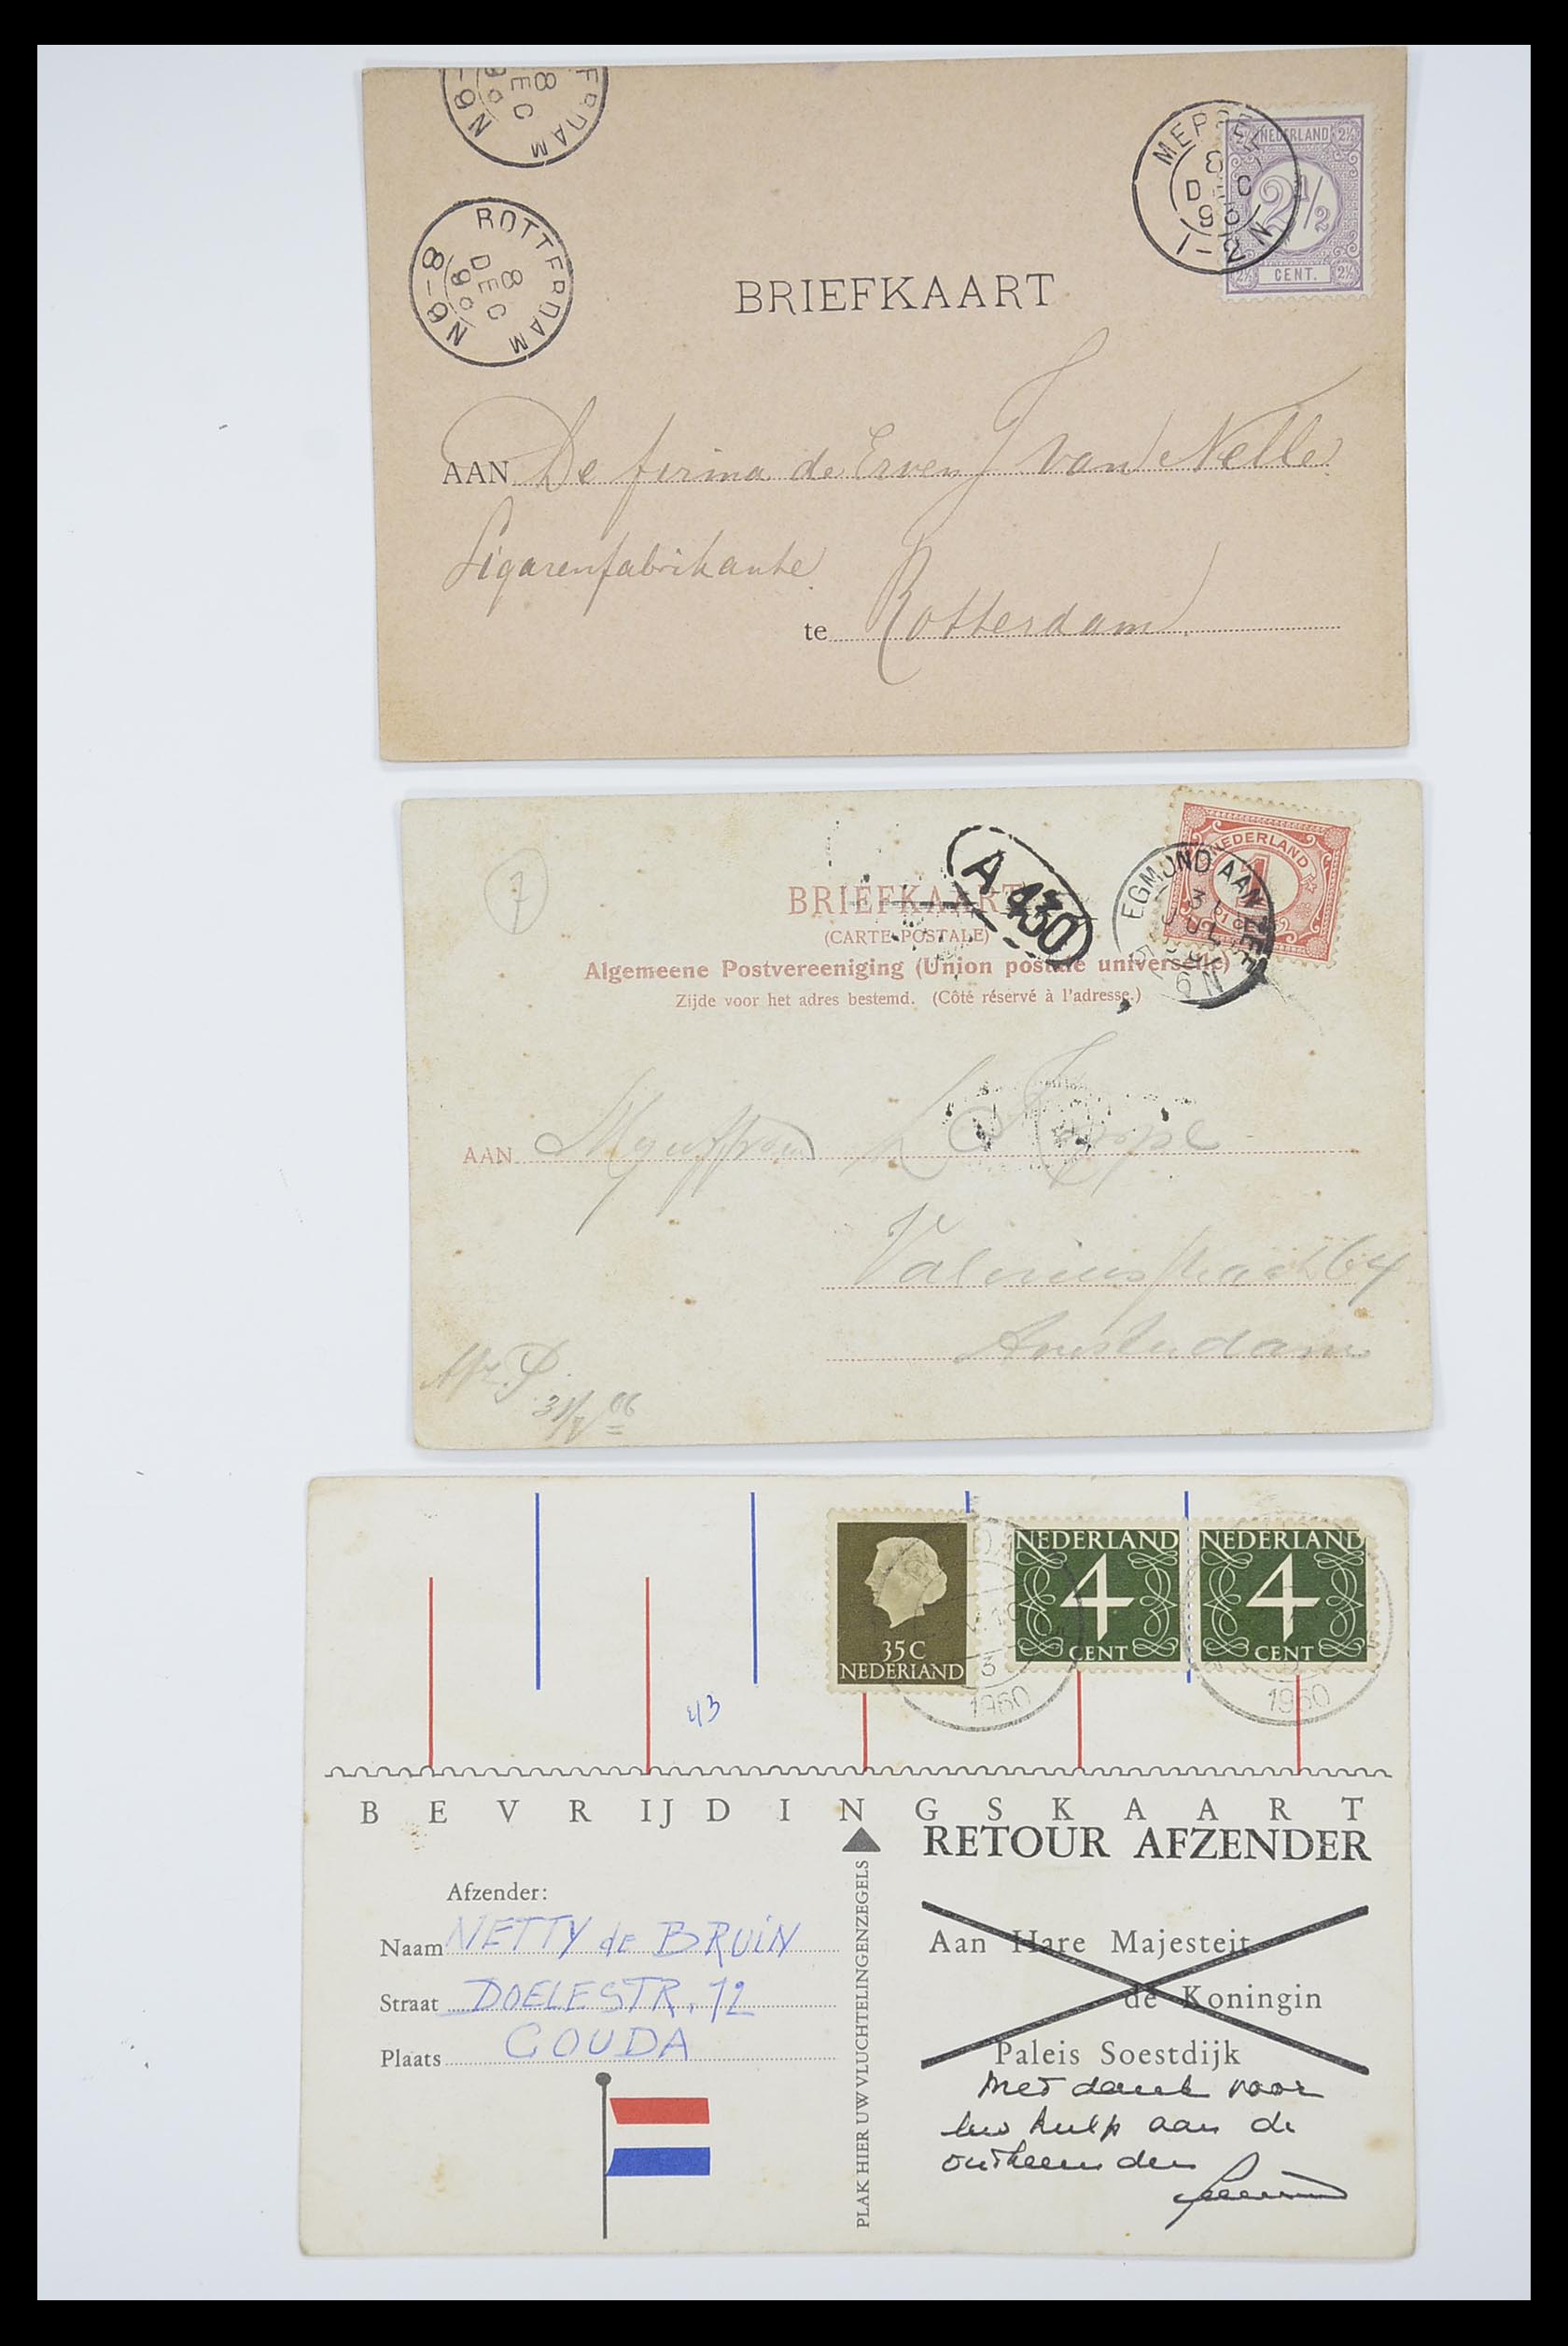 ROTTERDAM
8
DEC
N6-8
MEPPEL
8
DEC
1-2N
NEDERLAND
2½
CENT.
BRIEFKAART
AAN De firma de Erven J van Nelle
Sigarenfabrikante
te Rotterdam
7
NEDERLAND
1
A 430
EGMOND AAN ZEE
JUL
BRIEFKAART
(CARTE POSTALE)
Algemeene Postvereeniging (Union postale universelle)
Zijde voor het adres bestemd. (Côté réservé à l'adresse.)
AAN Mejuffrouw
Valeriusstraat 64
Amsterdam
31/7 06
35C
NEDERLAND
NEDERLAND
4
CENT
NEDERLAND
4
CENT
1960
1960
BEVRIJDINGSKAART
RETOUR AFZENDER
Afzender:
Naam NETTY de BRUIN
Straat DOELESTR. 12
Plaats GOUDA
PLAK HIER UW VLUCHTELINGENZEGELS
Aan Hare Majesteit
de Koningin
Paleis Soestdijk
Met dank voor
uw hulp aan de
ontheemden